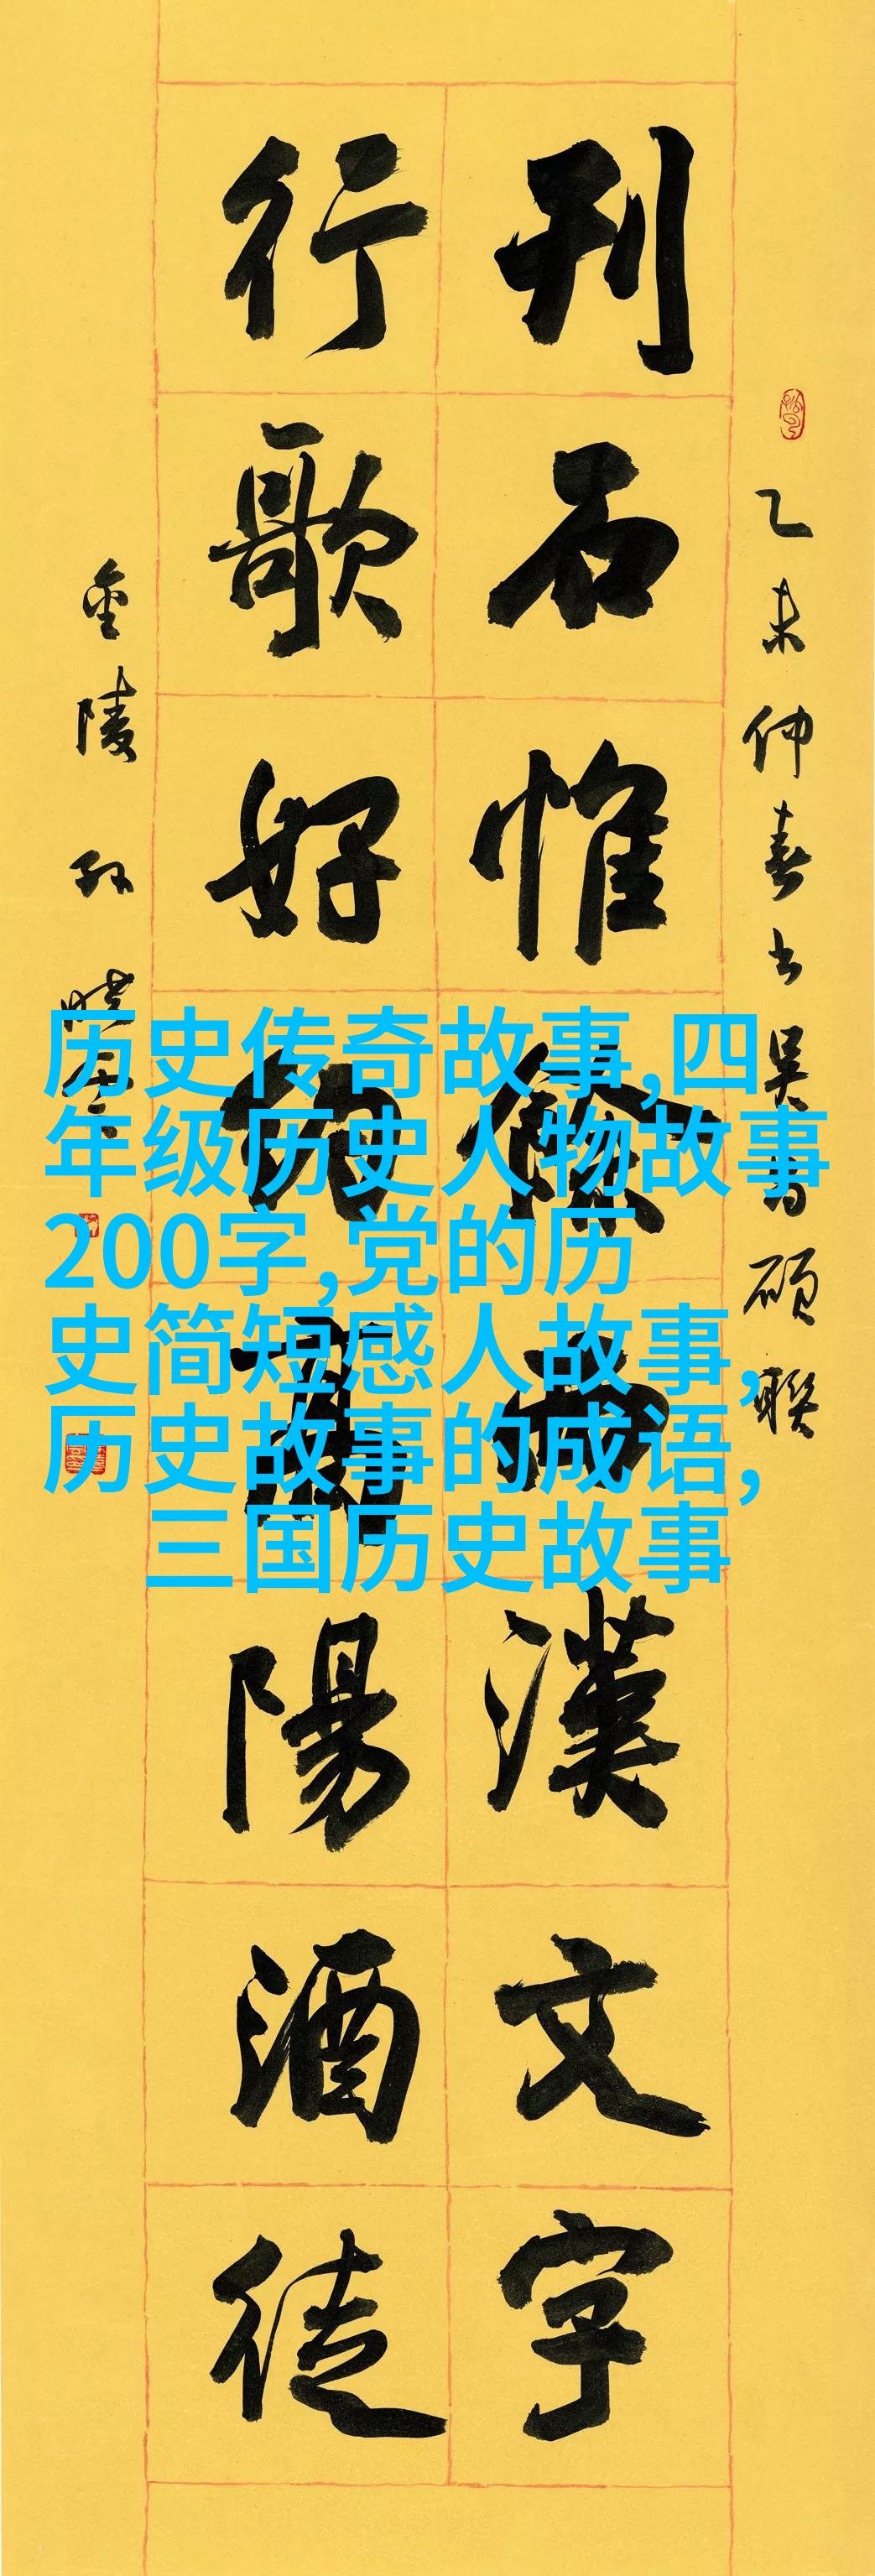 乙未仲春书吴昌硕联
刊石惟餘西漢文字
行歌好約高陽酒徒
金陵孙晓云
历史传奇故事,四
年级历史人物故事
200字,党的历
史简短感人故事,
历史故事的成语,
三国历史故事